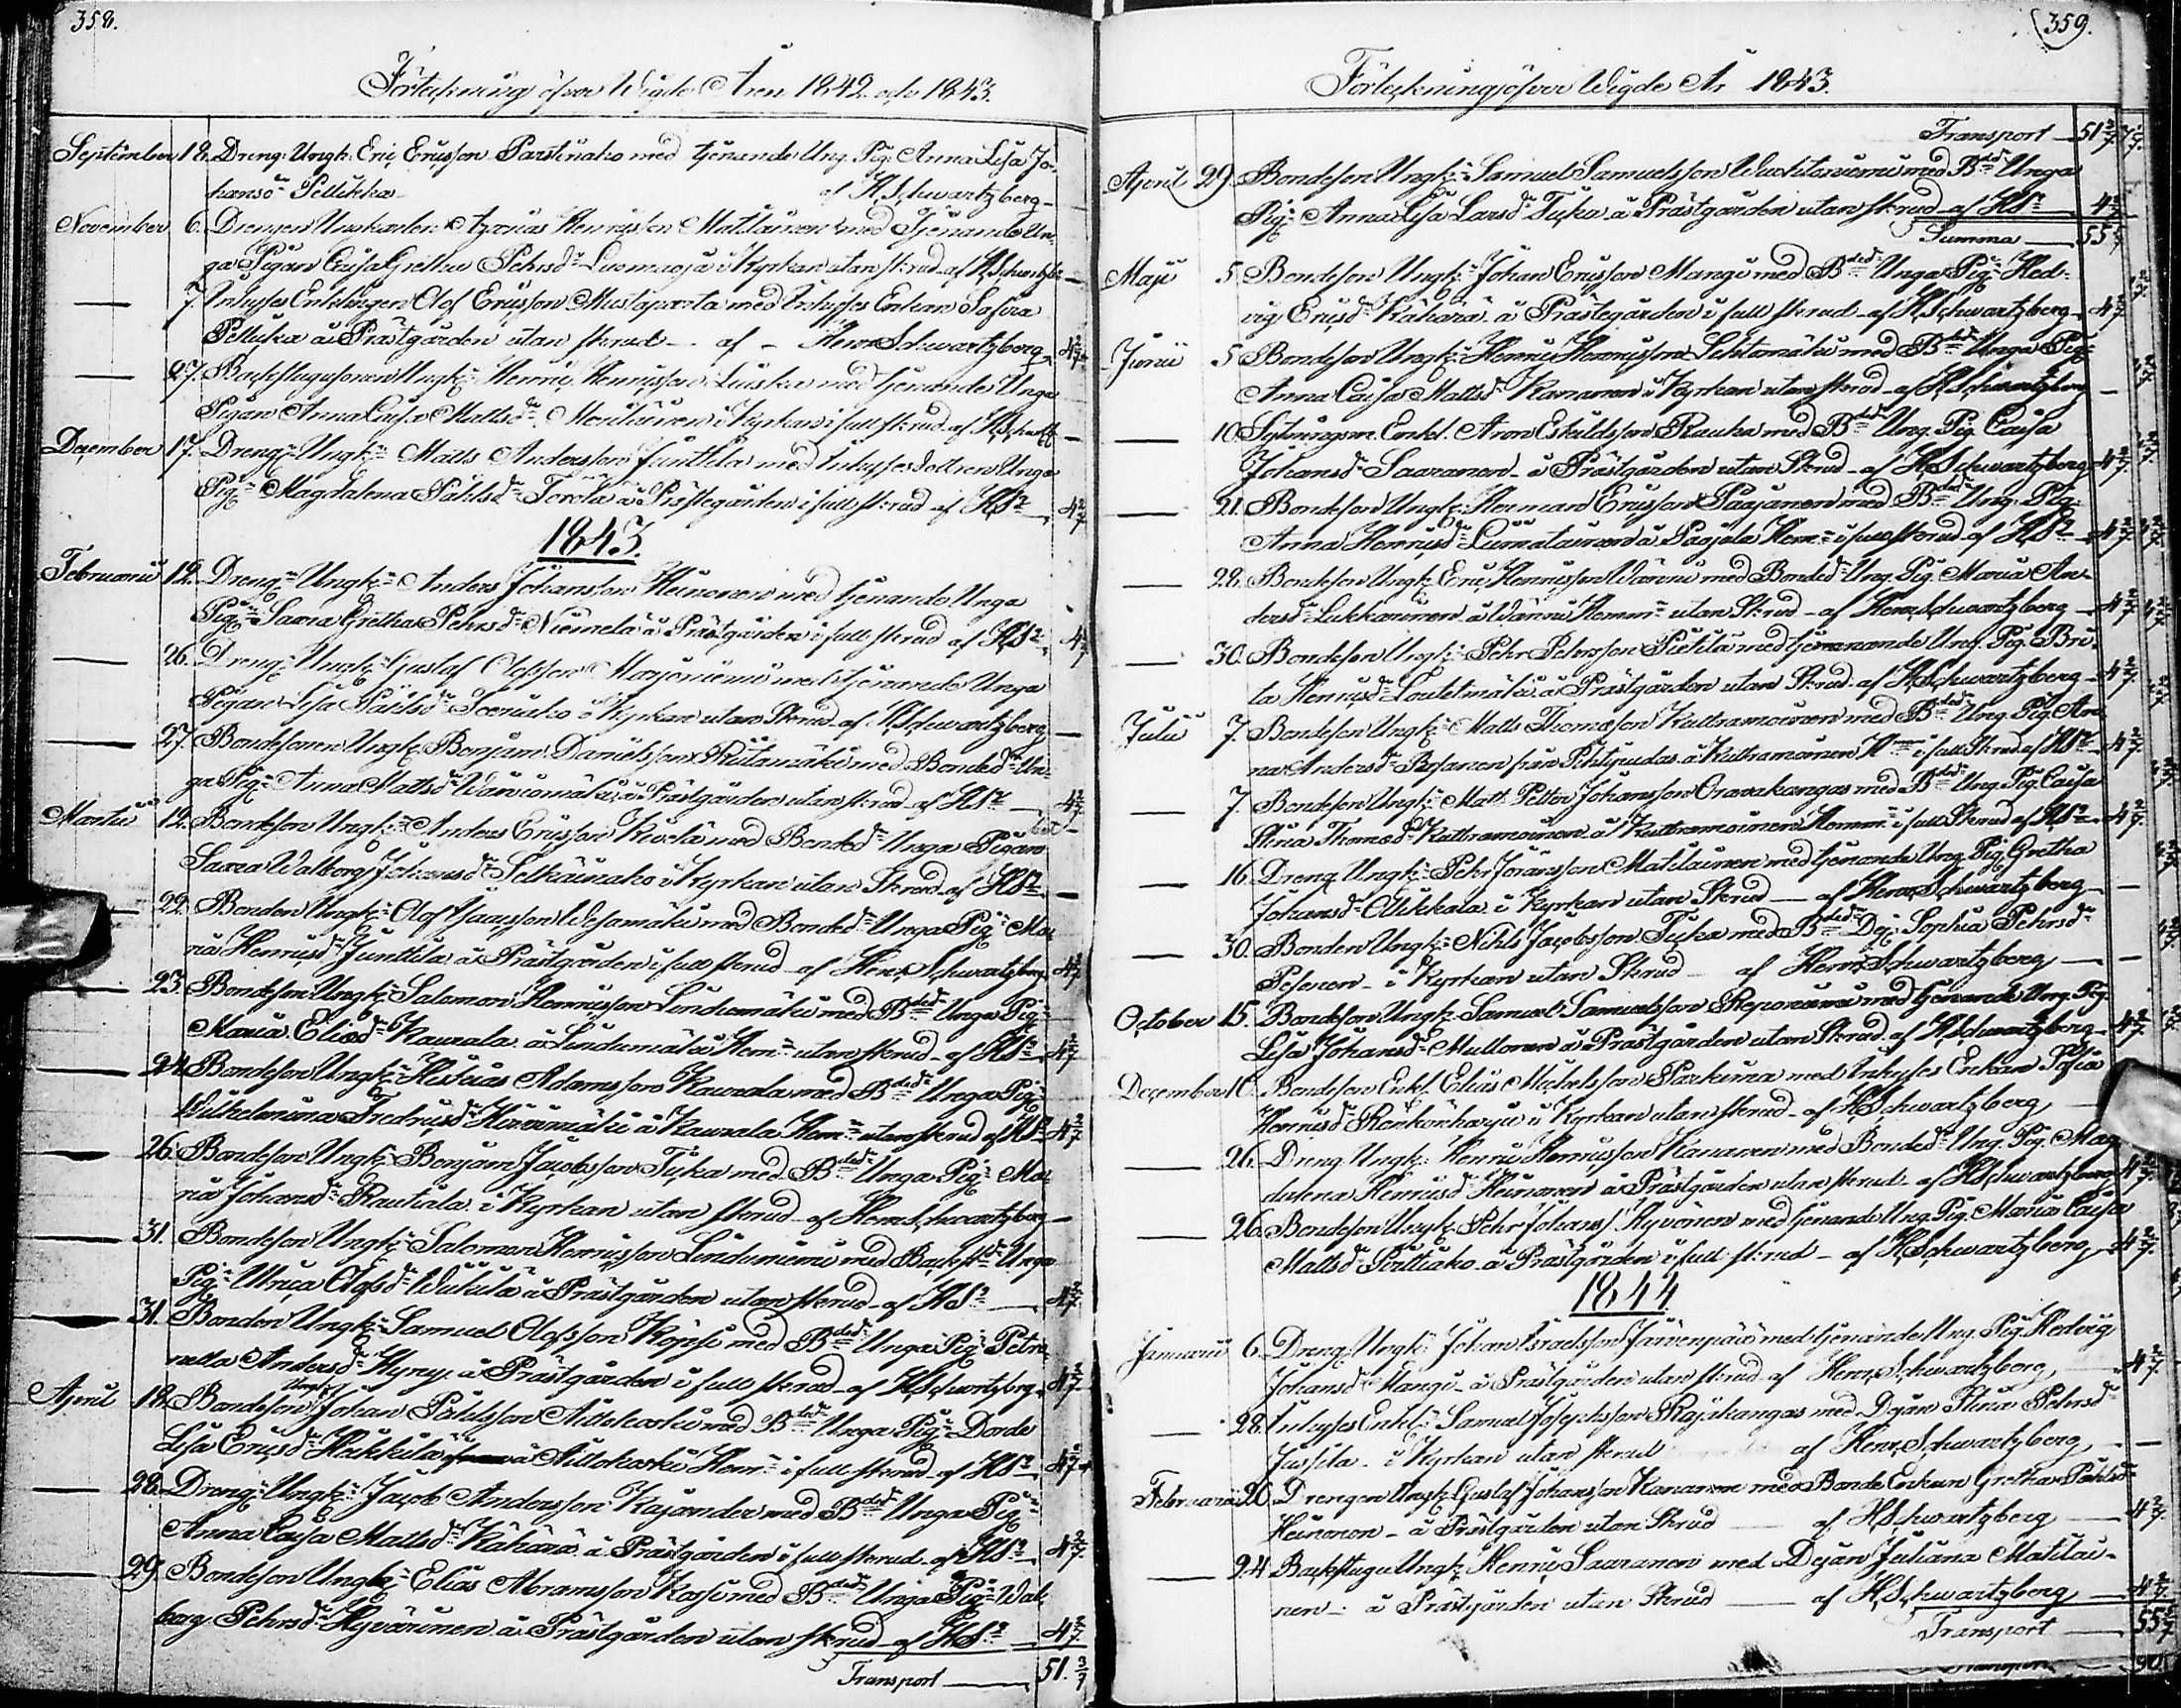 358.
Förteckning öfver Wigde Åren 1842 och 1843.
September 18. Dreng. Ungk: Eric Ericsson Parstinaho med tjenande Ung. Pig. Anna Lisa Jo-
hansdr Pellikka af H. Schwartzberg
November 6. Drengen Ungkarlen Henricsson Matilainen med Tjenande Un-
ga Pigan Caisa Gretha Pehrsdr Luomaoja i Kyrkan utan skrud af H. Schwartzb:
— 7. Inhyses Enklingen Olof Ericsson Mustaparta med Inhyses Enkan Sofia
Pellikka å Prästgården utan skrud — af — Herr Schwartzberg 4 2/7
— 27. Backstugusonen Ungk: Henric Henricsson Luiska med tjenande Unga
Pigan Anna Caisa Mattsdr Matilainen i Kyrkan i full skrud af H. Schwartz
December 17. Dreng: Ungk: Matts Andersson Junttila med Inhysesdottren Unga
Pig: Magdalena Påhlsdr Torvola å Prästegården i full skrud af HSr 4 2/7
1843.
Februarii 12. Dreng: Ungk: Anders Johansson Heinonen med tjenande Unga
Pig: Saara Gretha Pehrsdr Niemelä å Prästgården i full skrud af HSr 4 2/7
— 26. Dreng: Ungk: Gustaf Olofsson Marjoniemi med tjenande Unga
Pigan Lisa Påhlsdr i Kyrkan utan Skrud af H. Schwartzberg
— 27. Bondesonen Ungk: Benjam Danielsson med Bondedr Un-
ga Pig: Anna Mattsdr å Prästgården utan skrud af HSr 4 2/7
Martii 12. Bondeson Ungk: Anders Ericsson Kivelä med Bondedr Unga Pigan
Saara Walborg Johansdr Selkäinaho i Kyrkan utan Skrud af HSr
22. Bonden Ungk: Olof Isacsson Wesamäki med Bondedr Unga Pig: Ma-
ria Henricsdr Junttila å Prästgården i full skrud af Herr Schwartzberg 4 2/7
23. Bondeson Ungk: Salomon Henricsson Lindumäki med Bdedr Unga Pig:
Maria Eliasdr Kaurala å Lindumäki Hem: utan skrud af HSr 4 2/7
— 24. Bondeson Ungk: Hiskias Adamsson Kaurala med Bdedr Unga Pig:
Wilhelmina Fredricsdr å Kaurala Hem: utan skrud af HSr 4 2/7
— 26. Bondeson Ungk: Benjam Jacobsson Tiika med Bdedr Unga Pig: Ma-
ria Johansdr Rautiala i Kyrkan utan skrud af Herr Schwartzberg
— 31. Bondeson Ungk: Salomon Henricsson Linduniemi med Backst:dr Unga
Pig: Ulrica Olofsdr å Prästgården utan skrud af HSr 4 2/7
— 31. Bonden Ungk: Samuel Olofsson Köpsi med Bdedr Unga Pig: Petro-
nella Andersdr Hyry: å Prästgården i full skrud af H. Schwartzberg 4 2/7
April 18. Bondeson Ungk: Johan Påhlsson Aittokoski med Bdedr Unga Pig: Dorde
Lisa Ericsdr Heikkilä å Aittokoski Hem: i full skrud af HSr 4 2/7
— 28. Dreng: Ungk: Jacob Andersson Kajander med Bdedr Unga Pig:
Anna Caisa Mattsdr Kähärä å Prästgården i full skrud af HSr 4 2/7
— 29. Bondeson Ungk: Elias Abramsson med Bdedr Unga Pig: Wal-
borg Pehrsdr Hyvärinen å Prästgården utan skrud af HSr 4 2/7
Transport — 51. 3/7
359.
Förteckning öfver Wigde År 1843.
Transport — 51 3/7
April 29. Bondeson Ungk: Samuel Samuelsson med Bdedr Unga
Pig: Anna Lisa Larsdr Tiika å Prästgården utan skrud af HSr 4 2/7
Summa — 55 5/7
Maji 5. Bondeson Ungk: Johan Ericsson Mangi med Bdedr Unga Pig: Hed-
vig Ericsdr Kähärä å Prästegården i full skrud af H. Schwartzberg 4 2/7
Junii 5. Bondeson Ungk: Henric Henricsson Lehtomäki med Bdedr Unga Pig:
Anna Caisa Mattsdr Kananen i Kyrkan utan skrud af H. Schwartzberg —
— 10. Sytningsm. Enkl. Aron Eskildsson Rauha med Bdedr Ung. Pig. Caisa
Johansdr Saaranen å Prästgården utan Skrud af H. Schwartzberg 4 2/7
— 21. Bondeson Ungk: Herman Ericsson Paajanen med Bdedr Ung. Pig.
Anna Henricsdr Liimatainen å Paajala Hem: i full skrud af HSr 4 2/7
— 28. Bondeson Ungk: Eric Henricsson Wänni med Bondedr Ung. Pig. Maria An-
dersdr Lukkarinen å Wänni Hemm: utan Skrud af Herr Schwartzberg 4 2/7
— 30. Bondeson Ungk: Pehr Pehrsson Pietilä med tjenande Ung. Pig. Bri-
ta Henricsdr Koutelmäki å Prästgården utan Skrud af H. Schwartzberg 4 2/7
Julii 7. Bondeson Ungk: Matts Thomasson Kuttramoinen med Bdedr Ung. Pig. An-
na Andersdr från Pihtipudas å Kuttramoinen Hem i full Skrud af HSr 4 2/7
— 7. Bondeson Ungk: Matt Petter Johansson Oravakangas med Bdedr Ung. Pig. Caisa
Stina Thomasdr Kuttramoinen å Kuttramoinen Hemm: i full Skrud af HSr 4 2/7
— 16. Dreng Ungk: Pehr Jöransson Matilainen med tjenande Ung. Pig. Gretha
Johansdr Ollikkala i Kyrkan utan Skrud — af Herr Schwartzberg —
— 30. Bonden Ungk: Nihls Jacobsson Tiika med Bdedr Dej: Sophia Pehrsdr
Pesonen i Kyrkan utan Skrud af Herr Schwartzberg —
October 15. Bondeson Ungk: Samuel Samuelsson Reponiemi med tjenande Ung. Pig.
Lisa Johansdr Mullonen å Prästgården utan Skrud af H. Schwartzberg 4 2/7
December 10. Bondeson Enkl. Elias Michelsson Parkima med Inhyses Enkan Sofia
Henricsdr i Kyrkan utan skrud af H. Schwartzberg
— 26. Dreng Ungk: Henric Henricsson Kananen med Bondedr Ung. Pig. Mag-
dalena Henricsdr Heinonen å Prästgården utan skrud af H. Schwartzberg 4 2/7
— 26. Bondeson Ungk. Pehr Johanss: Hyvönen med tjenande Ung. Pig. Maria Caisa
Mattsdr Pirttiaho å Prästgården i full skrud — af H. Schwartzberg 4 2/7
1844
Januarii 6. Dreng Ungk: Johan Israelsson Järvenpää med tjenande Ung. Pig. Hedvig
Johansdr Mangi å Prästgården utan skrud af Herr Schwartzberg 4 2/7
— 28. Inhyses Enkl: Samuel Josephsson Rajakangas med Dejan Stina Pehrsdr
Jussila i Kyrkan utan skrud af Herr Schwartzberg —
Februarii 20. Drengen Ungk: Gustaf Johansson Kananen med Bonde Enkan Gretha Påhlsdr
Heinonen — å Prästgården utan Skrud — af H. Schwartzberg — 4 2/7
— 24 Backstugu Ungk: Henric Saaranen med Dejan Juliana Matilai-
nen — å Prästgården utan Skrud — af H. Schwartzberg — 4 2/7
Transport — 55 5/7